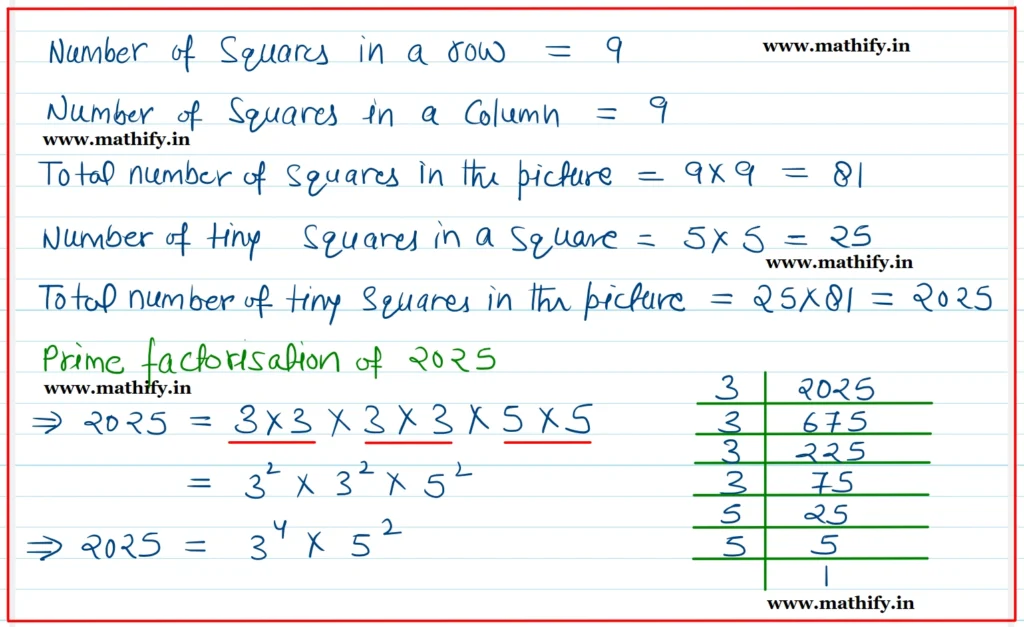 Number of Squares in a row = 9
www.mathify.in
Number of Squares in a Column = 9
www.mathify.in
Total number of squares in the picture = 9 × 9 = 81
Number of tiny Squares in a Square = 5 × 5 = 25
www.mathify.in
Total number of tiny Squares in the picture = 25 × 81 = 2025
Prime factorisation of 2025
www.mathify.in
⇒ 2025 = 3 × 3 × 3 × 3 × 5 × 5
= 3² × 3² × 5²
⇒ 2025 = 3⁴ × 5²
3 | 2025
3 | 675
3 | 225
3 | 75
5 | 25
5 | 5
| 1
www.mathify.in